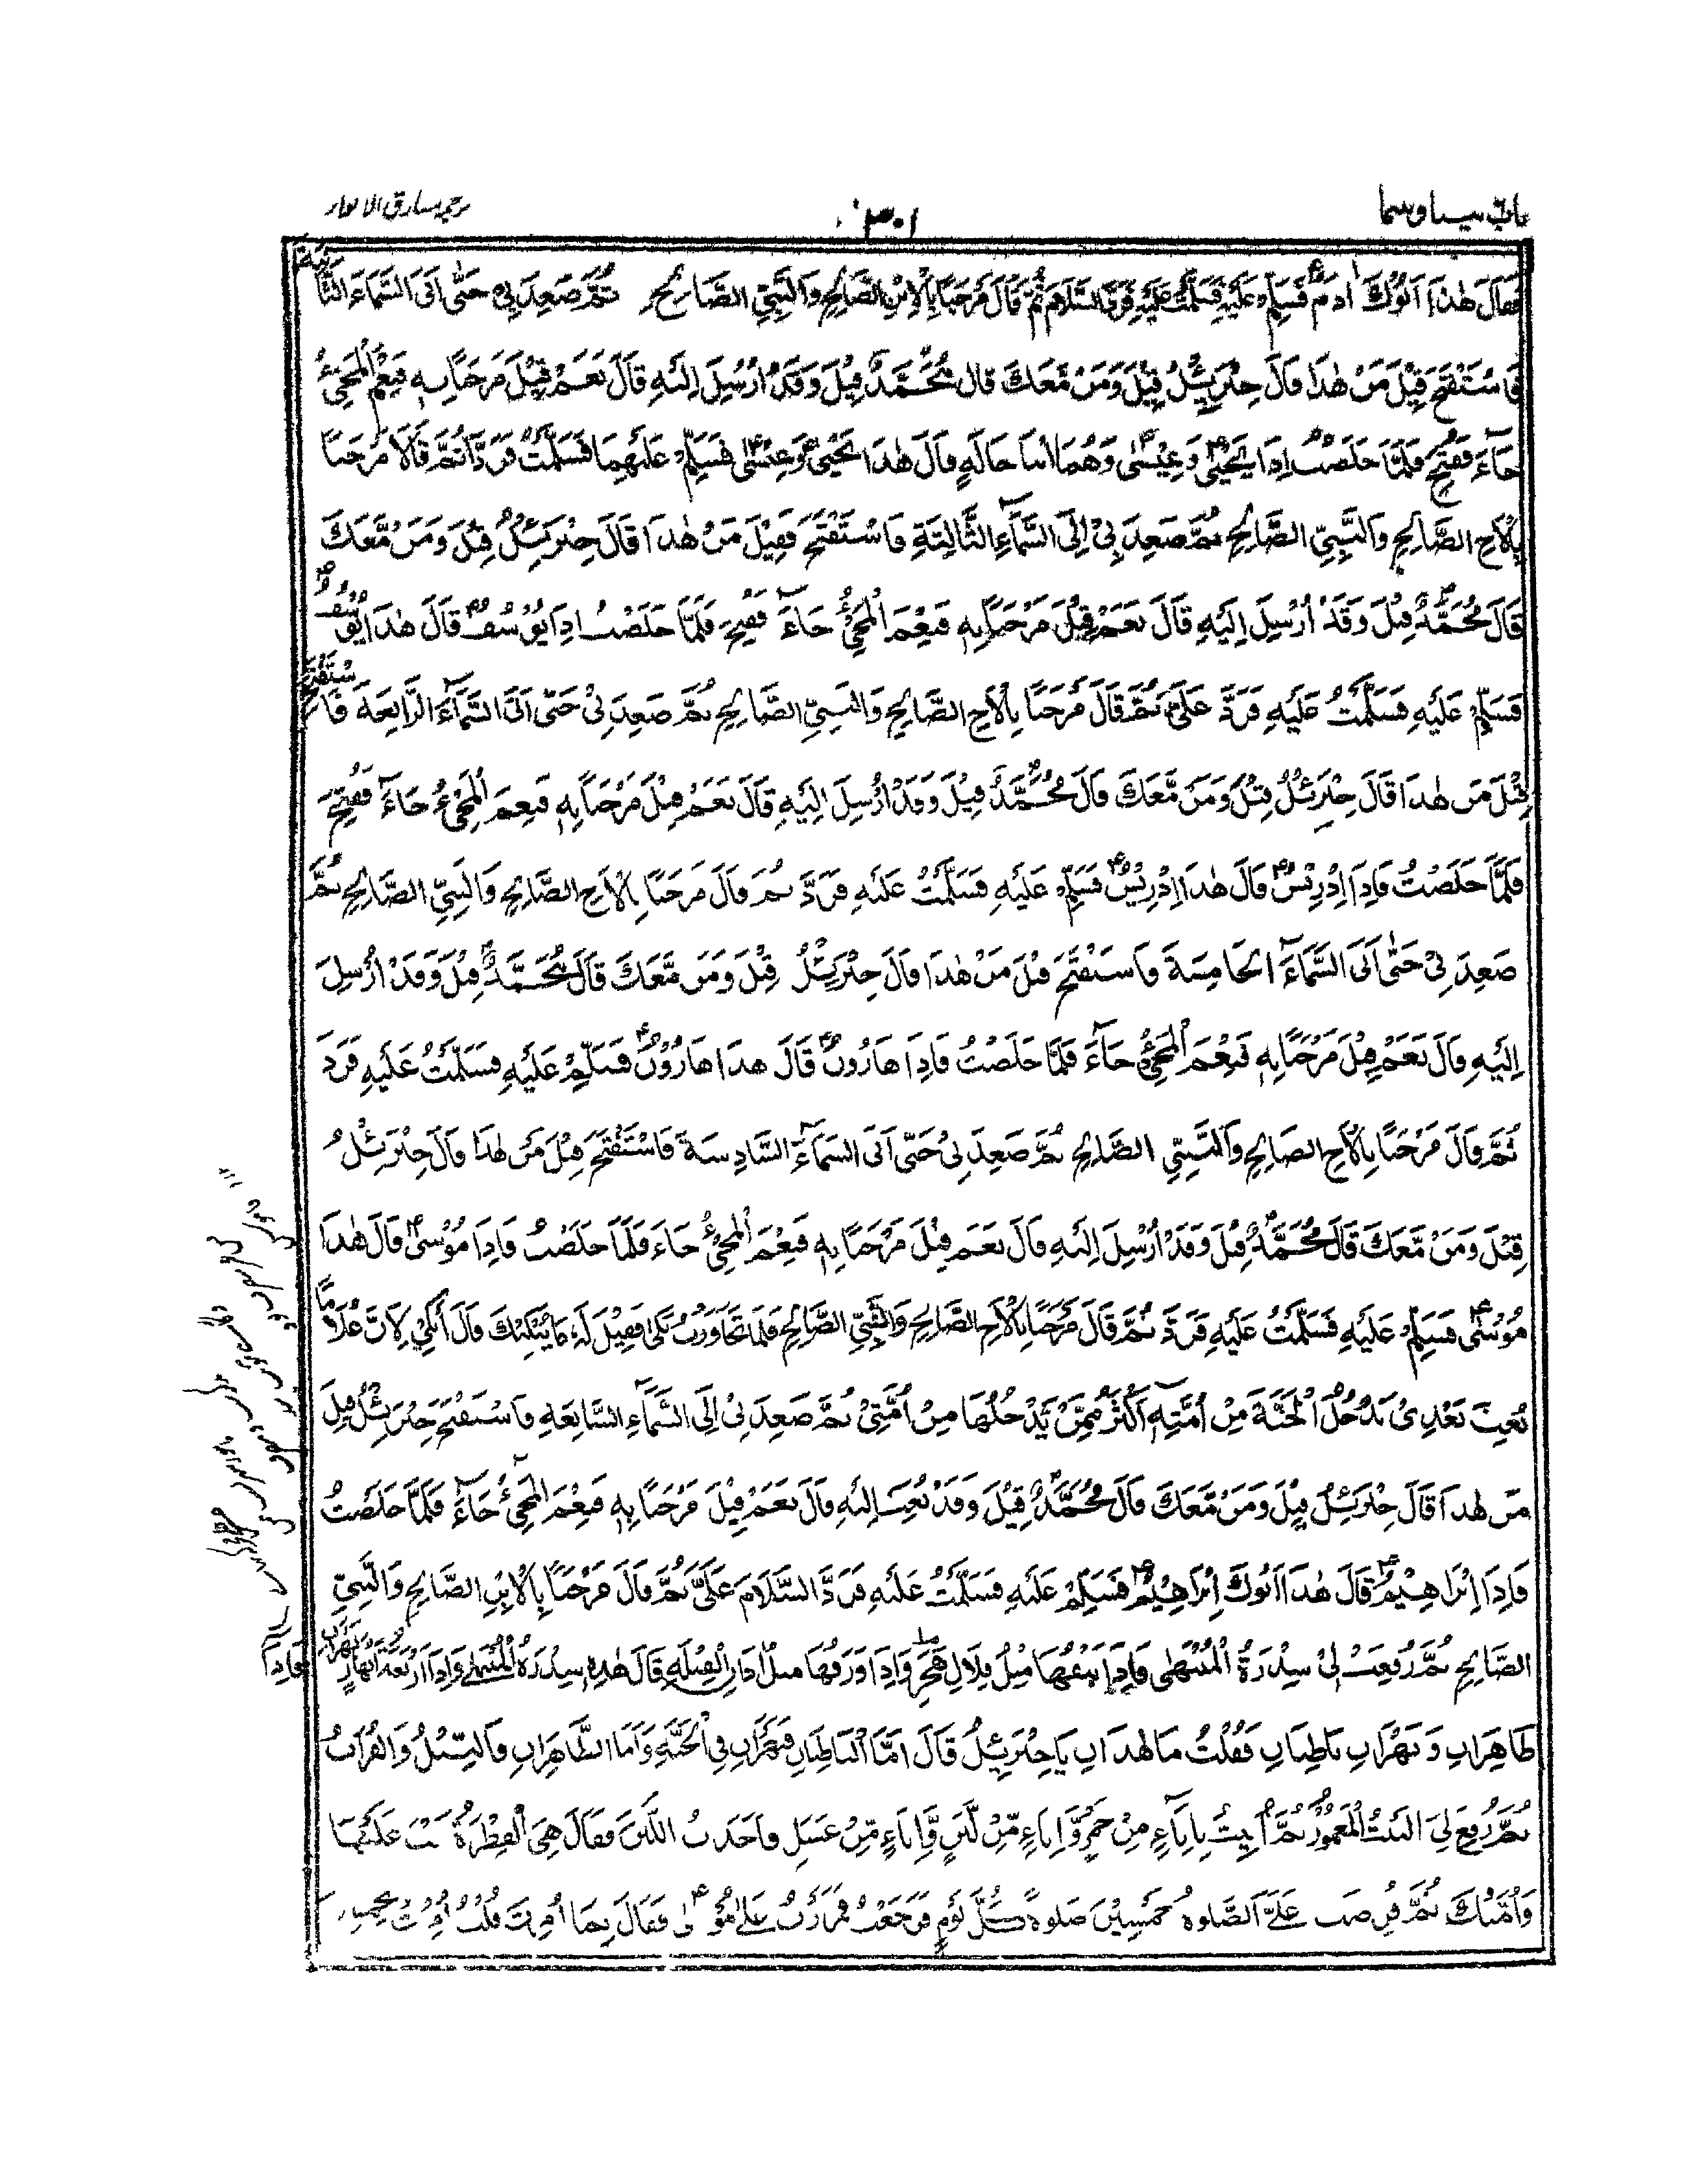 باب بینا و بینما ۳۰۱ ترجمہ مشارق الانوار
فَقَالَ هٰذَا اَبُوْكَ اٰدَمُ فَسَلِّمْ عَلَيْهِ فَسَلَّمْتُ عَلَيْهِ فَرَدَّ السَّلَامَ ثُمَّ قَالَ مَرْحَبًا بِالْاِبْنِ الصَّالِحِ وَالنَّبِيِّ الصَّالِحِ ثُمَّ صَعِدَ بِيْ حَتّٰى اَتَى السَّمَاءَ الثَّانِيَةَ
فَاسْتَفْتَحَ قِيْلَ مَنْ هٰذَا قَالَ جِبْرَئِيْلُ قِيْلَ وَمَنْ مَّعَكَ قَالَ مُحَمَّدٌ قِيْلَ وَقَدْ اُرْسِلَ اِلَيْهِ قَالَ نَعَمْ قِيْلَ مَرْحَبًا بِهٖ فَنِعْمَ الْمَجِيْءُ
جَاءَ فَفُتِحَ فَلَمَّا خَلَصْتُ اِذَا يَحْيٰى وَعِيْسٰى وَهُمَا ابْنَا خَالَةٍ قَالَ هٰذَا يَحْيٰى وَعِيْسٰى فَسَلِّمْ عَلَيْهِمَا فَسَلَّمْتُ فَرَدَّا ثُمَّ قَالَا مَرْحَبًا
بِالْاَخِ الصَّالِحِ وَالنَّبِيِّ الصَّالِحِ ثُمَّ صَعِدَ بِيْ اِلَى السَّمَاءِ الثَّالِثَةِ فَاسْتَفْتَحَ فَقِيْلَ مَنْ هٰذَا قَالَ جِبْرَئِيْلُ قِيْلَ وَمَنْ مَّعَكَ
قَالَ مُحَمَّدٌ قِيْلَ وَقَدْ اُرْسِلَ اِلَيْهِ قَالَ نَعَمْ قِيْلَ مَرْحَبًا بِهٖ فَنِعْمَ الْمَجِيْءُ جَاءَ فَفُتِحَ فَلَمَّا خَلَصْتُ اِذَا يُوْسُفُ قَالَ هٰذَا يُوْسُفُ
فَسَلِّمْ عَلَيْهِ فَسَلَّمْتُ عَلَيْهِ فَرَدَّ عَلَيَّ ثُمَّ قَالَ مَرْحَبًا بِالْاَخِ الصَّالِحِ وَالنَّبِيِّ الصَّالِحِ ثُمَّ صَعِدَ بِيْ حَتّٰى اَتَى السَّمَاءَ الرَّابِعَةَ فَاسْتَفْتَحَ
قِيْلَ مَنْ هٰذَا قَالَ جِبْرَئِيْلُ قِيْلَ وَمَنْ مَّعَكَ قَالَ مُحَمَّدٌ قِيْلَ وَقَدْ اُرْسِلَ اِلَيْهِ قَالَ نَعَمْ قِيْلَ مَرْحَبًا بِهٖ فَنِعْمَ الْمَجِيْءُ جَاءَ فَفُتِحَ
فَلَمَّا خَلَصْتُ فَاِذَا اِدْرِيْسُ قَالَ هٰذَا اِدْرِيْسُ فَسَلِّمْ عَلَيْهِ فَسَلَّمْتُ عَلَيْهِ فَرَدَّ ثُمَّ قَالَ مَرْحَبًا بِالْاَخِ الصَّالِحِ وَالنَّبِيِّ الصَّالِحِ ثُمَّ
صَعِدَ بِيْ حَتّٰى اَتَى السَّمَاءَ الْخَامِسَةَ فَاسْتَفْتَحَ قِيْلَ مَنْ هٰذَا قَالَ جِبْرَئِيْلُ قِيْلَ وَمَنْ مَّعَكَ قَالَ مُحَمَّدٌ قِيْلَ وَقَدْ اُرْسِلَ
اِلَيْهِ قَالَ نَعَمْ قِيْلَ مَرْحَبًا بِهٖ فَنِعْمَ الْمَجِيْءُ جَاءَ فَلَمَّا خَلَصْتُ فَاِذَا هَارُوْنُ قَالَ هٰذَا هَارُوْنُ فَسَلِّمْ عَلَيْهِ فَسَلَّمْتُ عَلَيْهِ فَرَدَّ
ثُمَّ قَالَ مَرْحَبًا بِالْاَخِ الصَّالِحِ وَالنَّبِيِّ الصَّالِحِ ثُمَّ صَعِدَ بِيْ حَتّٰى اَتَى السَّمَاءَ السَّادِسَةَ فَاسْتَفْتَحَ قِيْلَ مَنْ هٰذَا قَالَ جِبْرَئِيْلُ
قِيْلَ وَمَنْ مَّعَكَ قَالَ مُحَمَّدٌ قِيْلَ وَقَدْ اُرْسِلَ اِلَيْهِ قَالَ نَعَمْ قِيْلَ مَرْحَبًا بِهٖ فَنِعْمَ الْمَجِيْءُ جَاءَ فَلَمَّا خَلَصْتُ فَاِذَا مُوْسٰى قَالَ هٰذَا
مُوْسٰى فَسَلِّمْ عَلَيْهِ فَسَلَّمْتُ عَلَيْهِ فَرَدَّ ثُمَّ قَالَ مَرْحَبًا بِالْاَخِ الصَّالِحِ وَالنَّبِيِّ الصَّالِحِ فَلَمَّا تَجَاوَزْتُ بَكٰى فَقِيْلَ لَهٗ مَا يُبْكِيْكَ قَالَ اَبْكِيْ لِاَنَّ غُلَامًا
بُعِثَ بَعْدِيْ يَدْخُلُ الْجَنَّةَ مِنْ اُمَّتِهٖ اَكْثَرُ مِمَّنْ يَدْخُلُهَا مِنْ اُمَّتِيْ ثُمَّ صَعِدَ بِيْ اِلَى السَّمَاءِ السَّابِعَةِ فَاسْتَفْتَحَ جِبْرَئِيْلُ قِيْلَ
مَنْ هٰذَا قَالَ جِبْرَئِيْلُ قِيْلَ وَمَنْ مَّعَكَ قَالَ مُحَمَّدٌ قِيْلَ وَقَدْ بُعِثَ اِلَيْهِ قَالَ نَعَمْ قِيْلَ مَرْحَبًا بِهٖ فَنِعْمَ الْمَجِيْءُ جَاءَ فَلَمَّا خَلَصْتُ
فَاِذَا اِبْرَاهِيْمُ قَالَ هٰذَا اَبُوْكَ اِبْرَاهِيْمُ فَسَلِّمْ عَلَيْهِ فَسَلَّمْتُ عَلَيْهِ فَرَدَّ السَّلَامَ عَلَيَّ ثُمَّ قَالَ مَرْحَبًا بِالْاِبْنِ الصَّالِحِ وَالنَّبِيِّ
الصَّالِحِ ثُمَّ رُفِعَتْ لِيْ سِدْرَةُ الْمُنْتَهٰى فَاِذَا نَبْقُهَا مِثْلُ قِلَالِ هَجَرَ وَاِذَا وَرَقُهَا مِثْلُ اٰذَانِ الْفِيَلَةِ قَالَ هٰذِهٖ سِدْرَةُ الْمُنْتَهٰى وَاِذَا اَرْبَعَةُ اَنْهَارٍ نَهْرَانِ
ظَاهِرَانِ وَنَهْرَانِ بَاطِنَانِ فَقُلْتُ مَا هٰذَانِ يَا جِبْرَئِيْلُ قَالَ اَمَّا الْبَاطِنَانِ فَنَهْرَانِ فِي الْجَنَّةِ وَاَمَّا الظَّاهِرَانِ فَالنِّيْلُ وَالْفُرَاتُ
ثُمَّ رُفِعَ لِيَ الْبَيْتُ الْمَعْمُوْرُ ثُمَّ اُتِيْتُ بِاِنَاءٍ مِنْ خَمْرٍ وَّاِنَاءٍ مِّنْ لَّبَنٍ وَّاِنَاءٍ مِّنْ عَسَلٍ فَاَخَذْتُ اللَّبَنَ فَقَالَ هِيَ الْفِطْرَةُ اَنْتَ عَلَيْهَا
وَاُمَّتُكَ ثُمَّ فُرِضَتْ عَلَيَّ الصَّلٰوةُ خَمْسِيْنَ صَلٰوةً كُلَّ يَوْمٍ فَرَجَعْتُ فَمَرَرْتُ عَلٰى مُوْسٰى فَقَالَ بِمَا اُمِرْتَ قُلْتُ اُمِرْتُ بِخَمْسِيْنَ